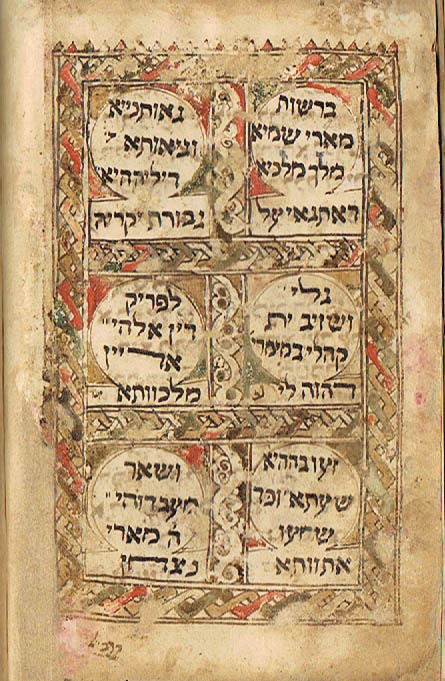 ברשות
מארי שמיא
מלך מלכיא
דאתגאי על
גאותניא
דיליההיא
גבורת יקריה
גלי
ושזיב ית
קהליבמימרי
דהוה לי
לפריק
דין אלהי"
אריין
מלכוותא
זעו בההיא
שעתא וכד
שמעו
אתוותא
ושאר
מעבדוהי"
מארי
נצחן